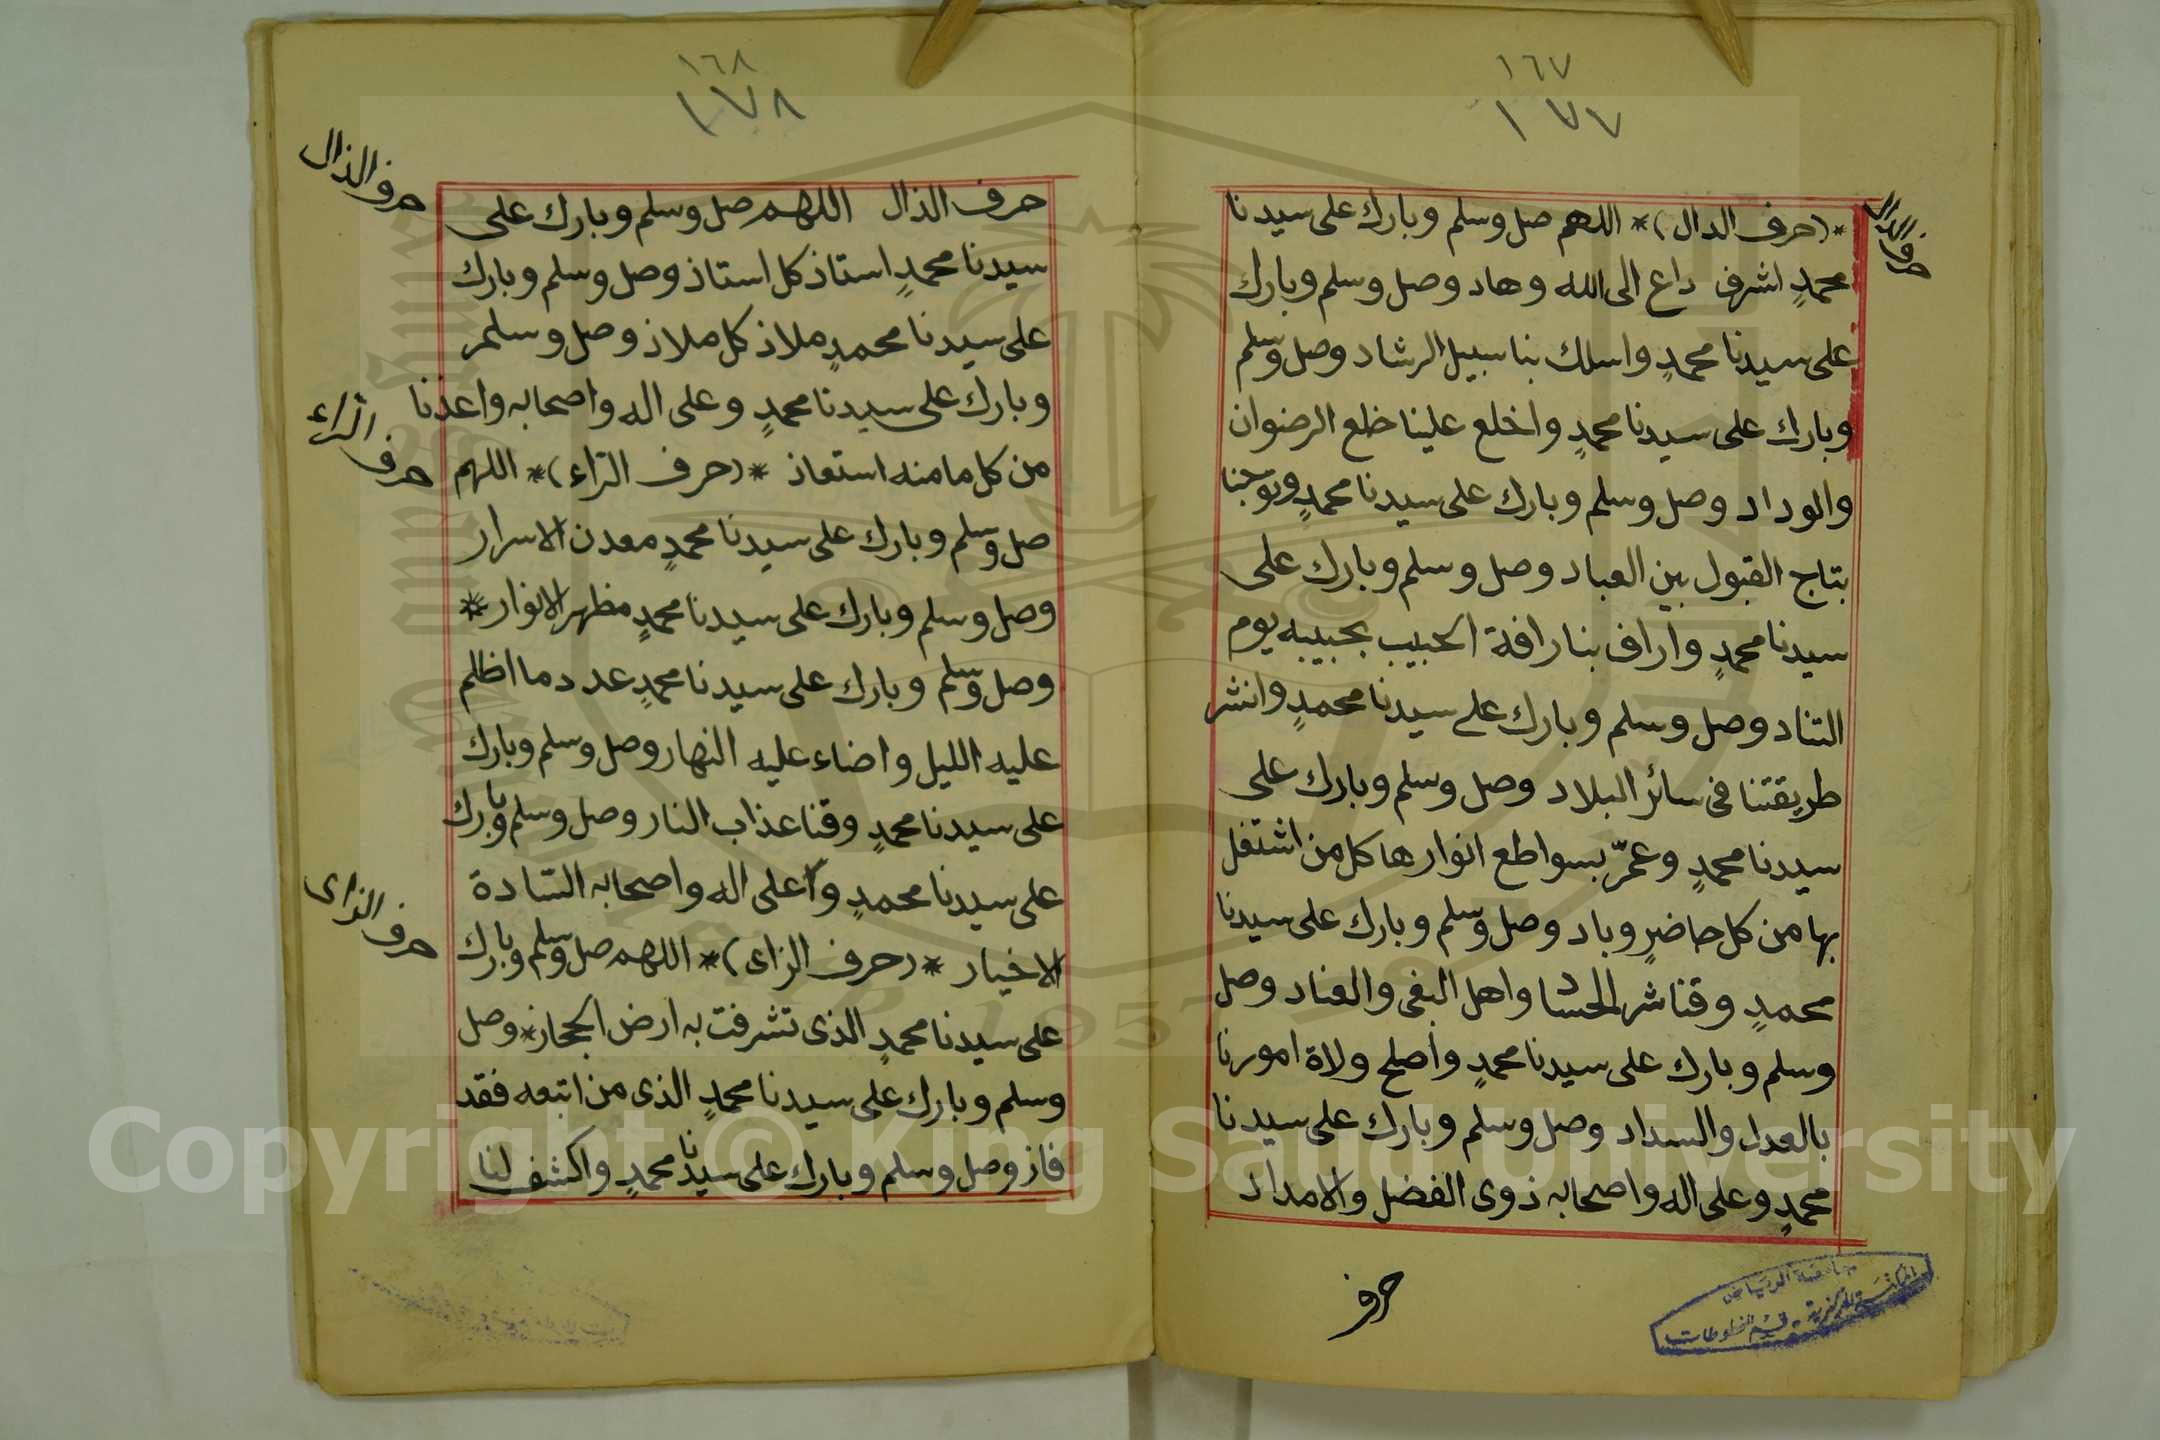 ١٦٧
١٧٧
حرف الدال
*(حرف الدال)* اللهم صل وسلم وبارك على سيدنا
محمدٍ اشرف داع الى الله وهاد وصل وسلم وبارك
على سيدنا محمدٍ واسلك بنا سبيل الرشاد وصل وسلم
وبارك على سيدنا محمدٍ واخلع علينا خلع الرضوان
والوداد وصل وسلم وبارك على سيدنا محمدٍ وتوجنا
بتاج القبول بين العباد وصل وسلم وبارك على
سيدنا محمدٍ واراف بنا رافة الحبيب بحبيبه يوم
التناد وصل وسلم وبارك على سيدنا محمدٍ وانشر
طريقتنا فى سائر البلاد وصل وسلم وبارك على
سيدنا محمدٍ وعمّر بسواطع انوارها كل من اشتغل
بها من كل حاضرٍ وباد وصل وسلم وبارك على سيدنا
محمدٍ وقنا شر الحساد واهل البغى والعناد وصل
وسلم وبارك على سيدنا محمدٍ واصلح ولاة امورنا
بالعدل والسداد وصل وسلم وبارك على سيدنا
محمدٍ وعلى اله واصحابه ذوى الفضل والامداد
حرف
جامعة الرياض
المكتبة المركزية - قسم المخطوطات
١٦٨
١٧٨
حرف الذال
حرف الذال اللهم صل وسلم وبارك على
سيدنا محمدٍ استاذ كل استاذ وصل وسلم وبارك
على سيدنا محمدٍ ملاذ كل ملاذ وصل وسلم
وبارك على سيدنا محمدٍ وعلى اله واصحابه واعذنا
حرف الرّاء
من كل ما منه استعاذ *(حرف الرّاء)* اللهم
صل وسلم وبارك على سيدنا محمدٍ معدن الاسرار
وصل وسلم وبارك على سيدنا محمدٍ مظهر الانوار *
وصل وسلم وبارك على سيدنا محمدٍ عدد ما اظلم
عليه الليل واضاء عليه النهار وصل وسلم وبارك
على سيدنا محمدٍ وقنا عذاب النار وصل وسلم وبارك
على سيدنا محمدٍ وعلى اله واصحابه السّادة
حرف الزاى
الاخيار *(حرف الزاى)* اللهم صل وسلم وبارك
على سيدنا محمدٍ الذى تشرفت به ارض الحجاز * وصل
وسلم وبارك على سيدنا محمدٍ الذى من اتبعه فقد
فاز وصل وسلم وبارك على سيدنا محمدٍ واكشف لنا
Copyright © King Saud University
1957